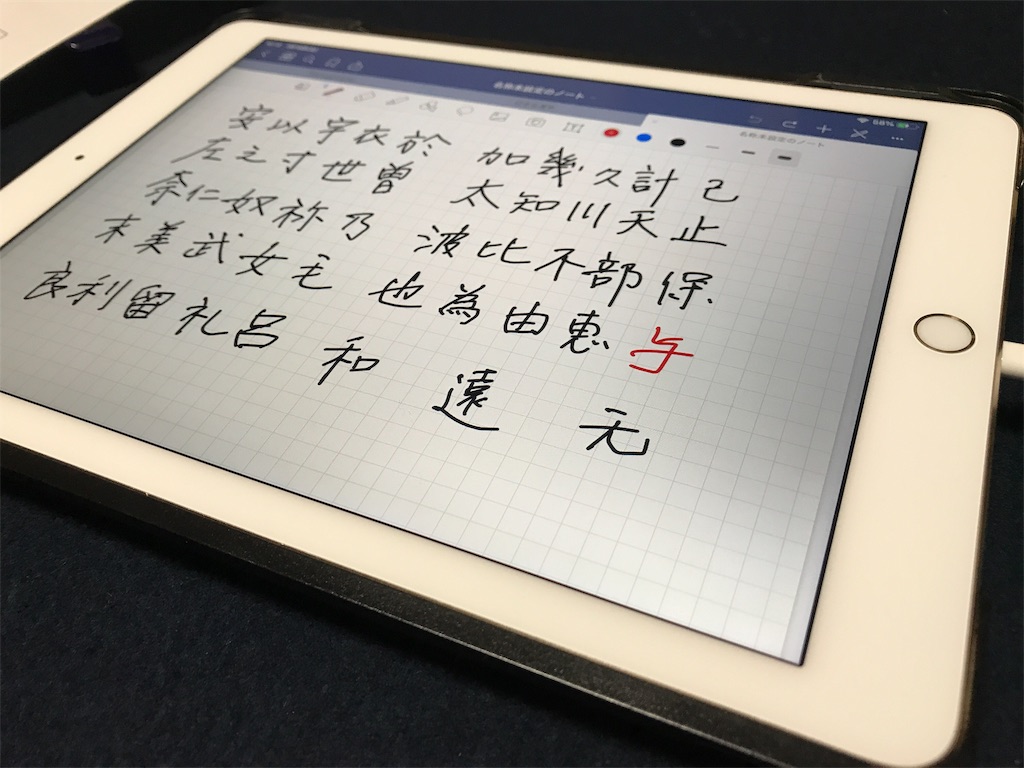 名称未設定のノート
68%
名称未設定のノート
安以宇衣於 加幾久計己
左之寸世曽 太知川天止
奈仁奴祢乃 波比不部保
末美武女毛 也為由恵与
良利留礼呂 和 遠 无